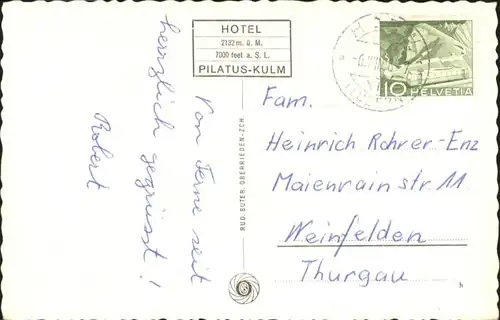 HOTEL
2132 m. ü. M.
7000 feet a. S. L.
PILATUS-KULM
Von Ferne seit
herzlich gegrüsst!
Robert
RUD. SUTER, OBERRIEDEN-ZCH.
10 HELVETIA
Fam.
Heinrich Rohrer-Enz
Maienrainstr 11
Weinfelden
Thurgau